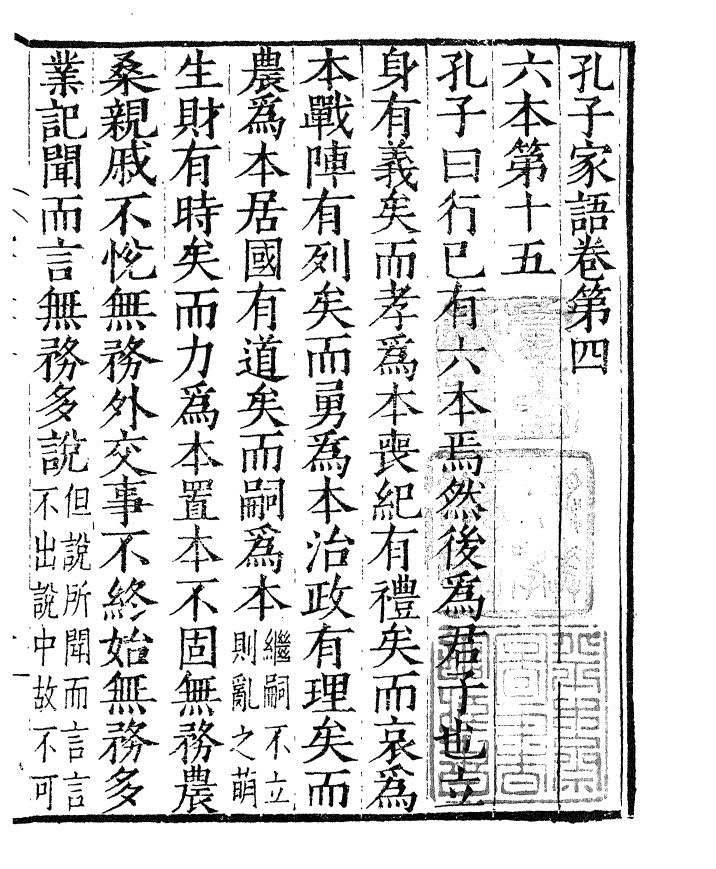 孔子家語卷第四
六本第十五
孔子曰行已有六本焉然後爲君子也立
身有義矣而孝爲本喪紀有禮矣而哀爲
本戰陣有列矣而勇爲本治政有理矣而
農爲本居國有道矣而嗣爲本繼嗣不立則亂之萌
生財有時矣而力爲本置本不固無務農
桑親戚不悅無務外交事不終始無務多
業記聞而言無務多說但說所聞而言言不出說中故不可